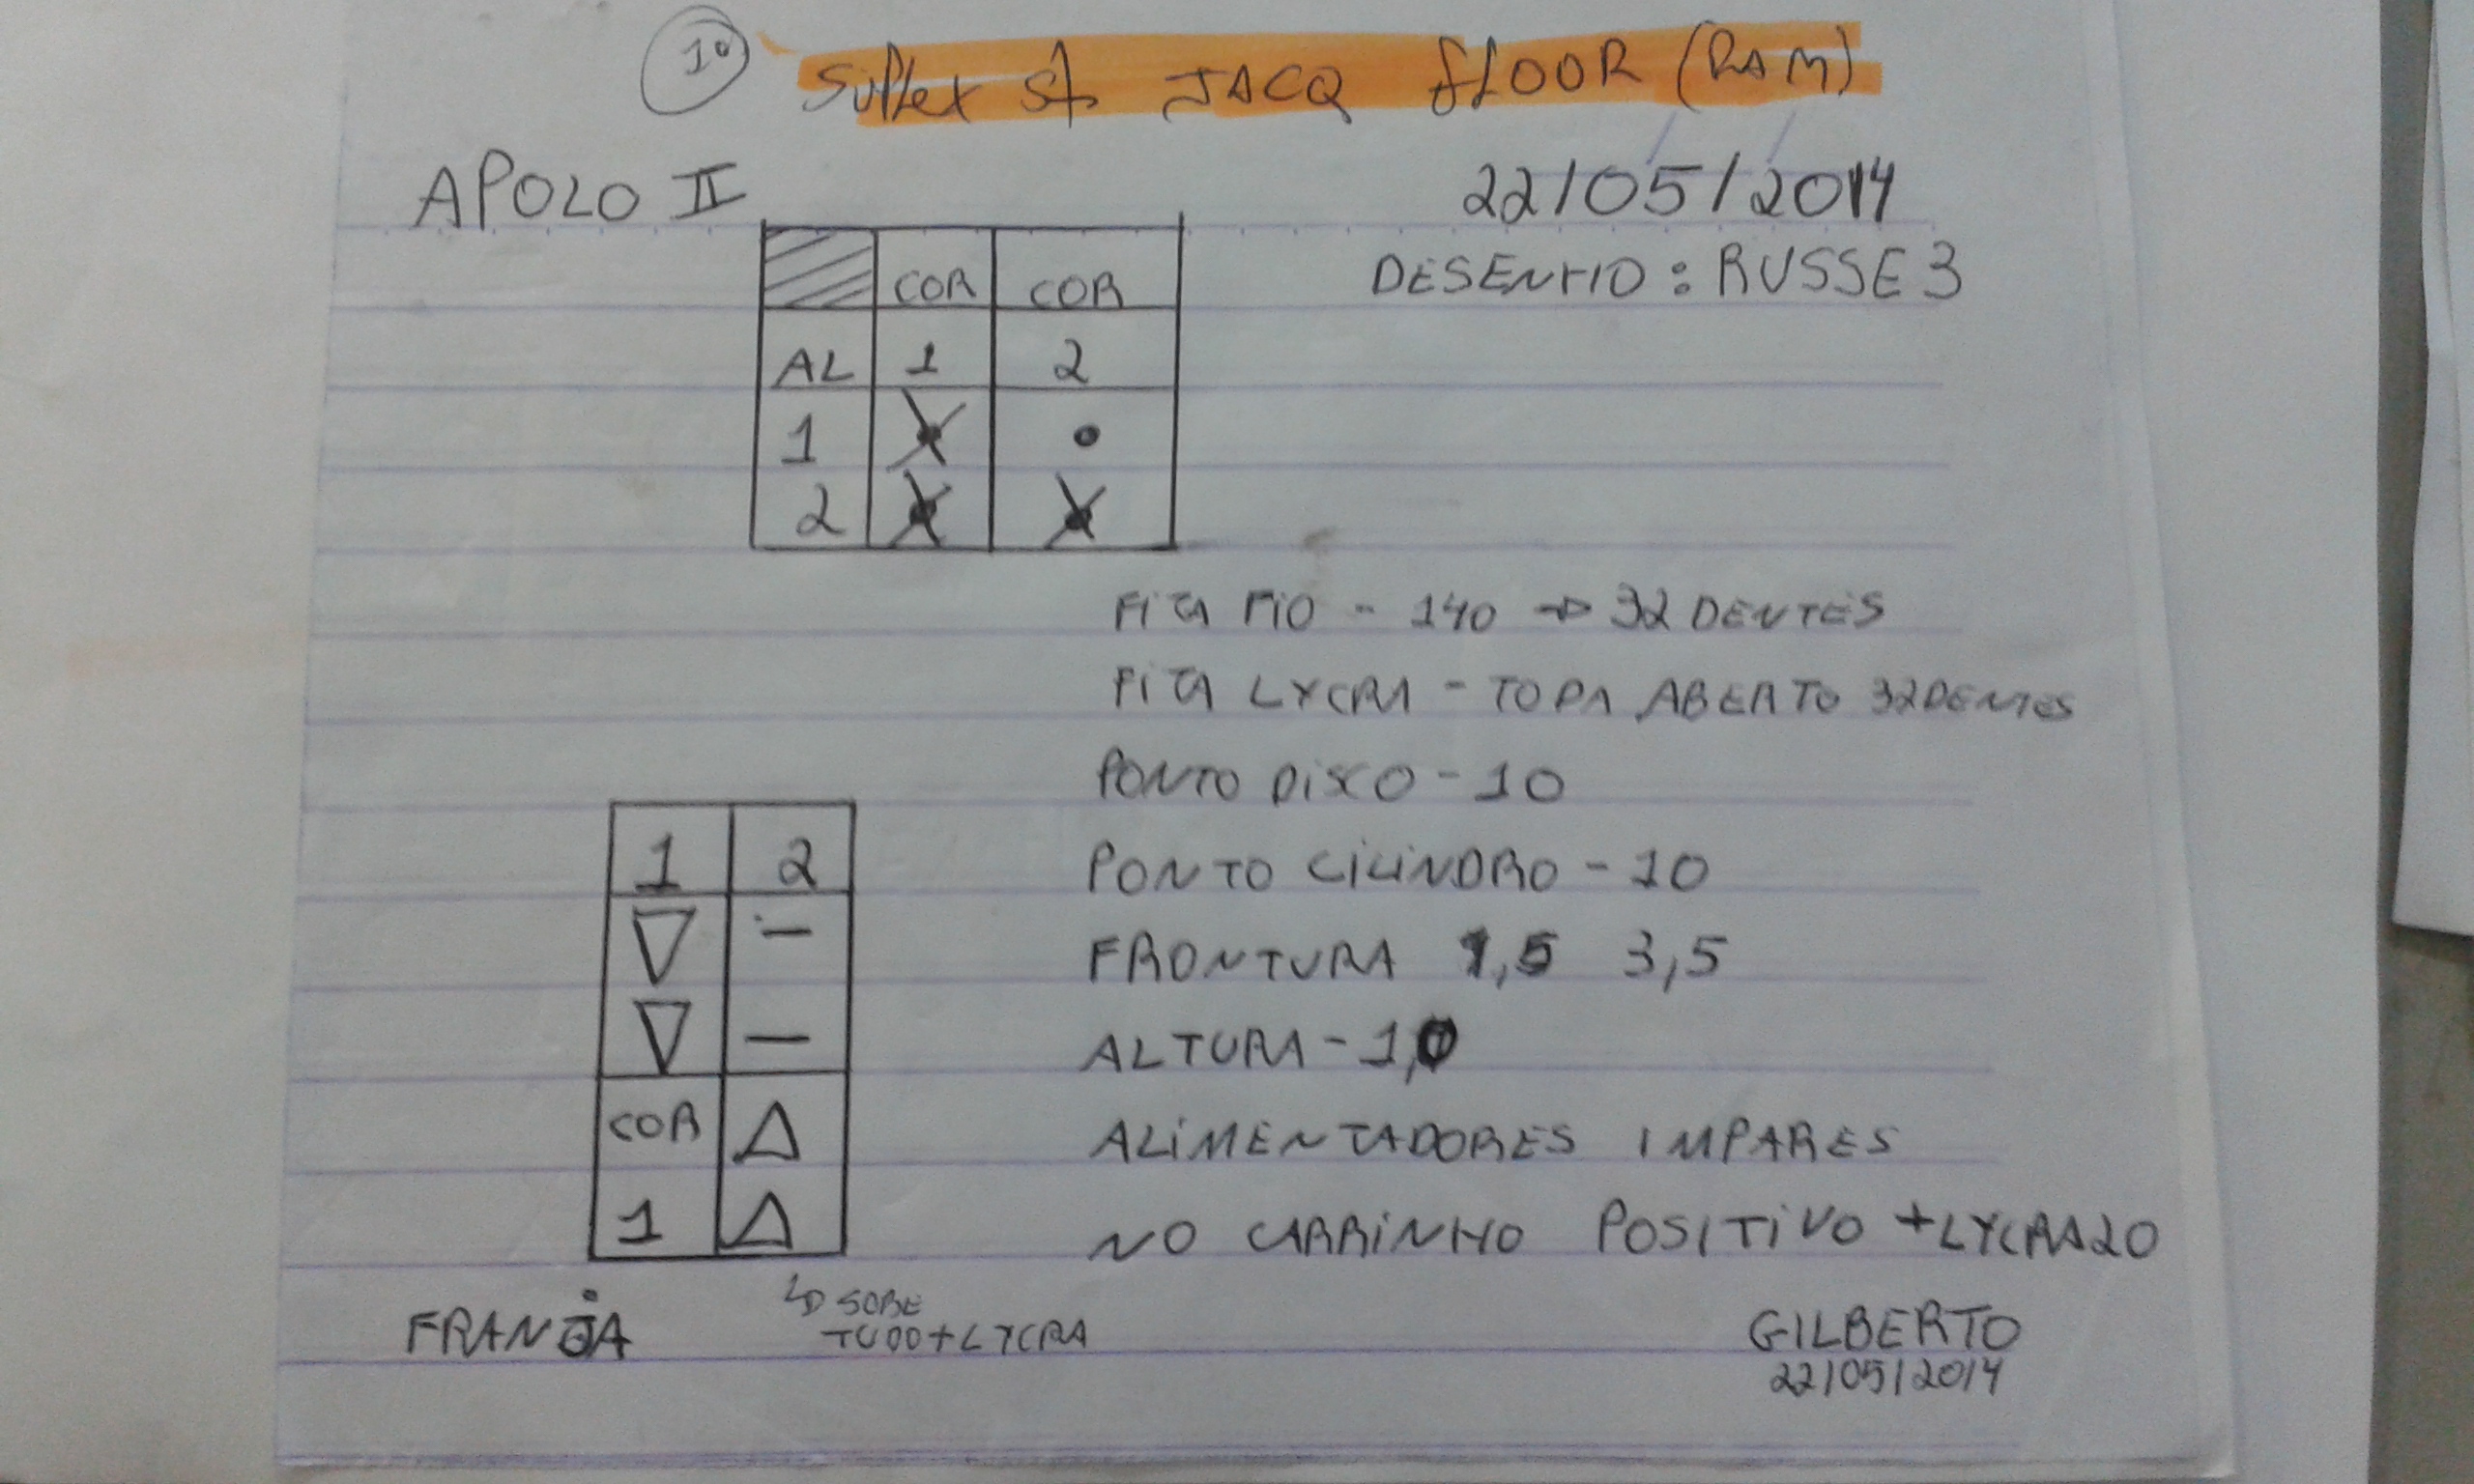 10 Suplex St JACQ flOOR (RAM)
APOLO II 22/05/2014
DESENHO: RUSSE 3
COR COR
AL 1 2
1 X •
2 X X
FITA FIO - 140 → 32 DENTES
FITA LYCRA - TOPA ABERTO 32 DENTES
PONTO DISCO - 10
1 2 PONTO CILINDRO - 10
▽ - FRONTURA 1,5 3,5
▽ - ALTURA - 1,0
COR △ ALIMENTADORES IMPARES
1 △ NO CARRINHO POSITIVO + LYCRA 20
↳ SOBE
FRANJA TUDO + LYCRA GILBERTO
22/05/2014